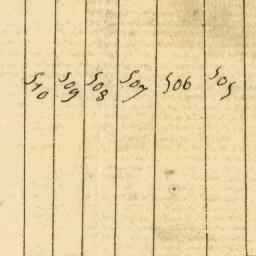 510 509 508 507 506 505